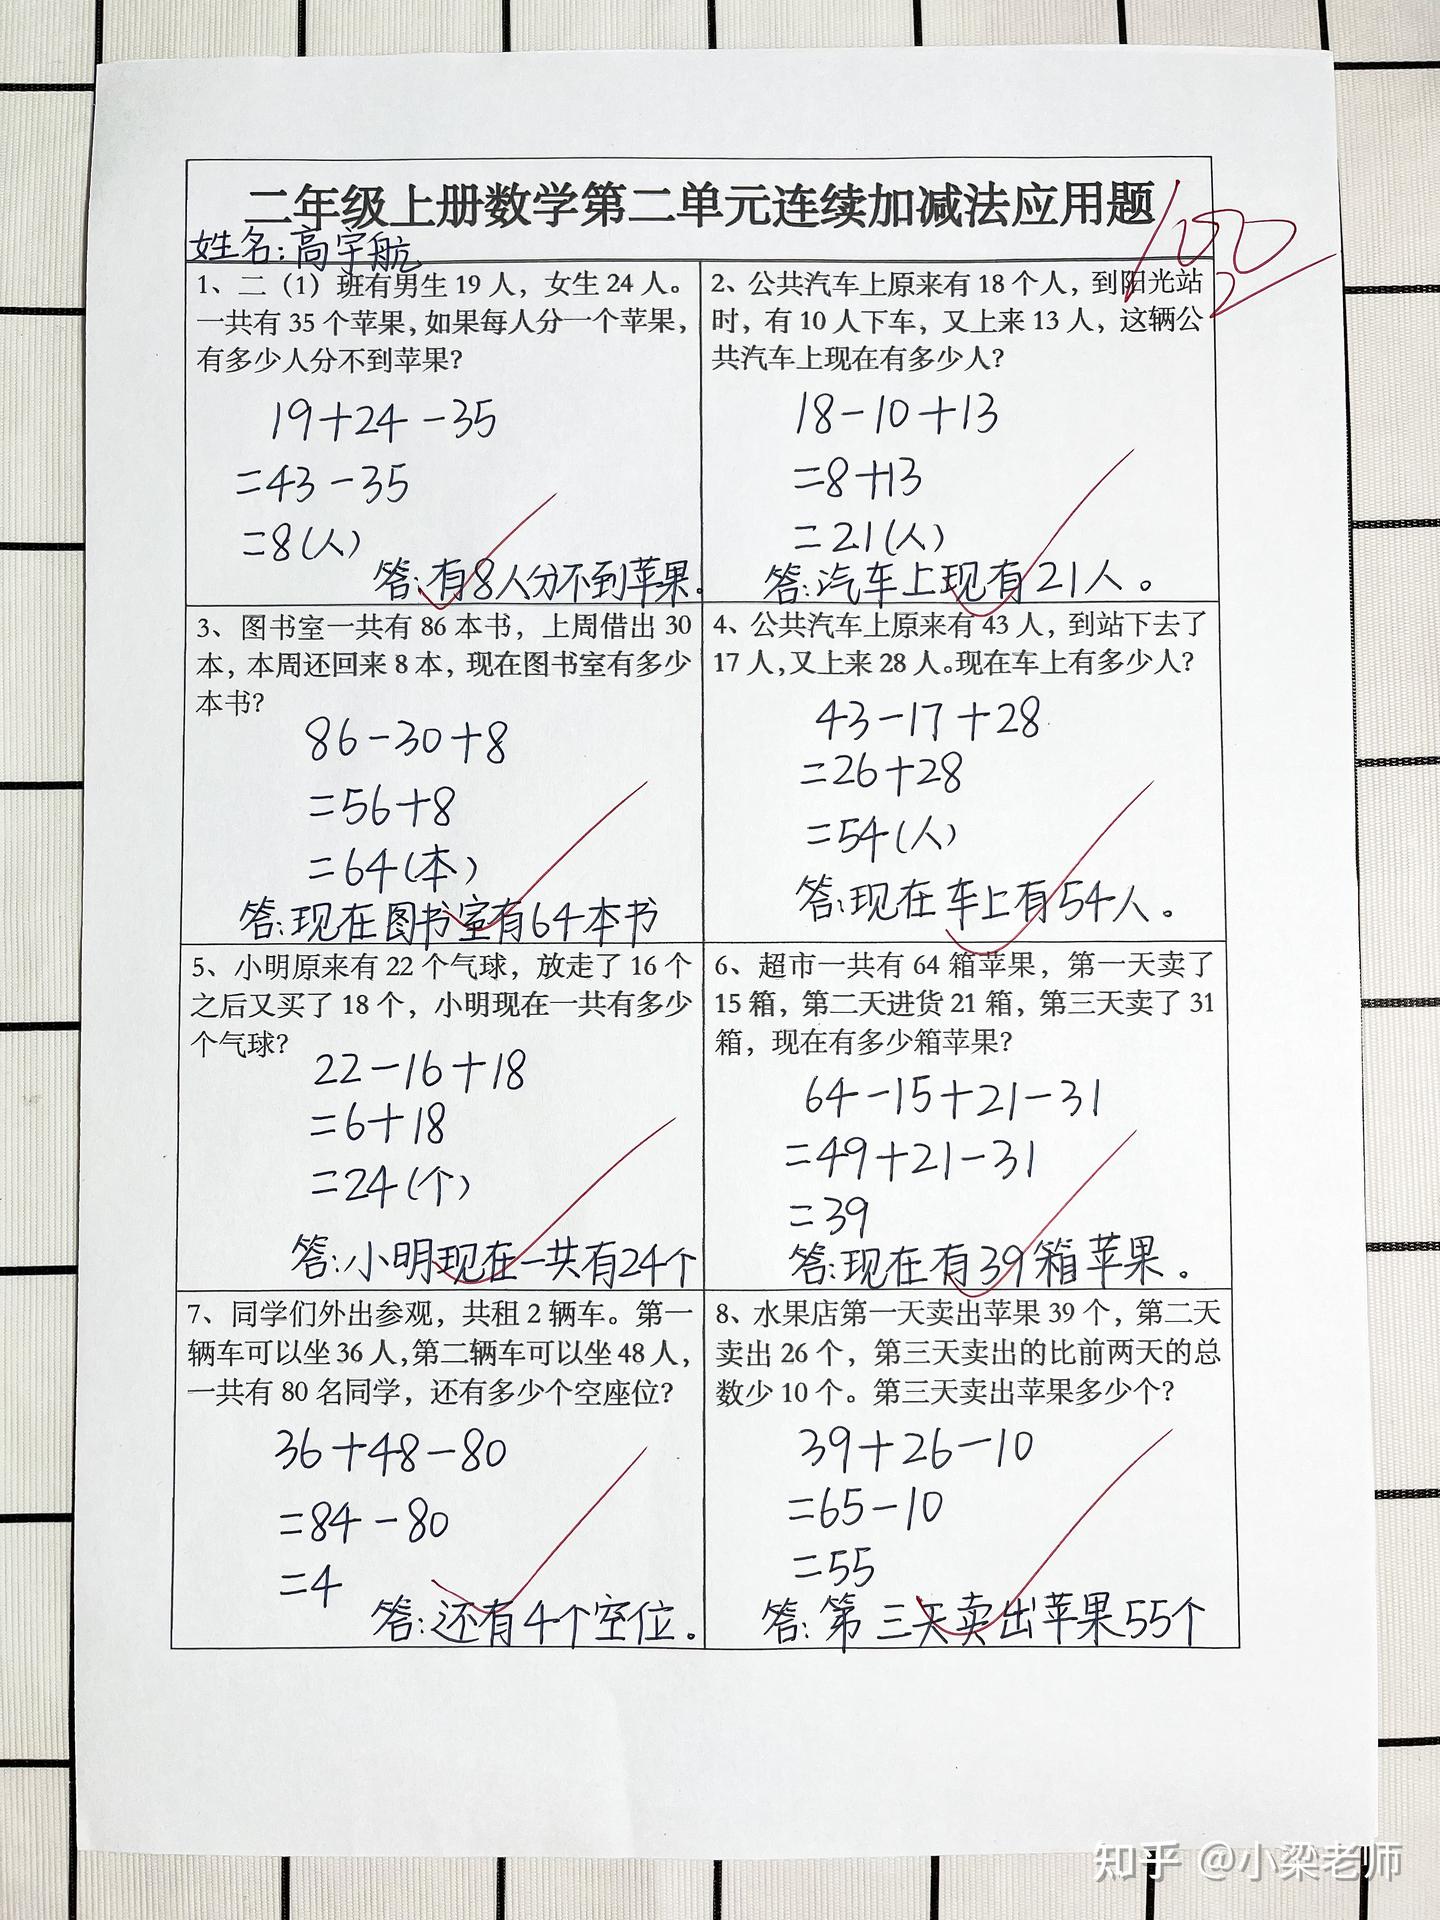 二年级上册数学第二单元连续加减法应用题
100
姓名:高宇航
1、二（1）班有男生 19 人，女生 24 人。
一共有 35 个苹果，如果每人分一个苹果，
有多少人分不到苹果?
19+24-35
=43-35
=8(人)
答:有8人分不到苹果.
2、公共汽车上原来有 18 个人，到阳光站
时，有 10 人下车，又上来 13 人，这辆公
共汽车上现在有多少人?
18-10+13
=8+13
=21(人)
答:汽车上现有21人。
3、图书室一共有 86 本书，上周借出 30
本，本周还回来 8 本，现在图书室有多少
本书?
86-30+8
=56+8
=64(本)
答:现在图书室有64本书
4、公共汽车上原来有 43 人，到站下去了
17 人，又上来 28 人。现在车上有多少人?
43-17+28
=26+28
=54(人)
答:现在车上有54人。
5、小明原来有 22 个气球，放走了 16 个
之后又买了 18 个，小明现在一共有多少
个气球?
22-16+18
=6+18
=24(个)
答:小明现在一共有24个
6、超市一共有 64 箱苹果，第一天卖了
15 箱，第二天进货 21 箱，第三天卖了 31
箱，现在有多少箱苹果?
64-15+21-31
=49+21-31
=39
答:现在有39箱苹果。
7、同学们外出参观，共租 2 辆车。第一
辆车可以坐 36 人，第二辆车可以坐 48 人，
一共有 80 名同学，还有多少个空座位?
36+48-80
=84-80
=4
答:还有4个空位。
8、水果店第一天卖出苹果 39 个，第二天
卖出 26 个，第三天卖出的比前两天的总
数少 10 个。第三天卖出苹果多少个?
39+26-10
=65-10
=55
答:第三天卖出苹果55个
知乎 @小梁老师